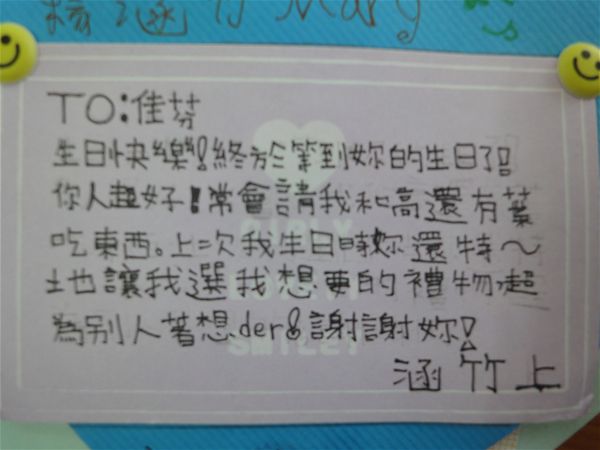 Mary
TO:佳芬
生日快樂!終於等到妳的生日了!
你人超好!常會請我和高還有葉
吃東西。上次我生日時妳還特~
地讓我選我想要的禮物,超
為別人著想der!謝謝妳!
涵竹上